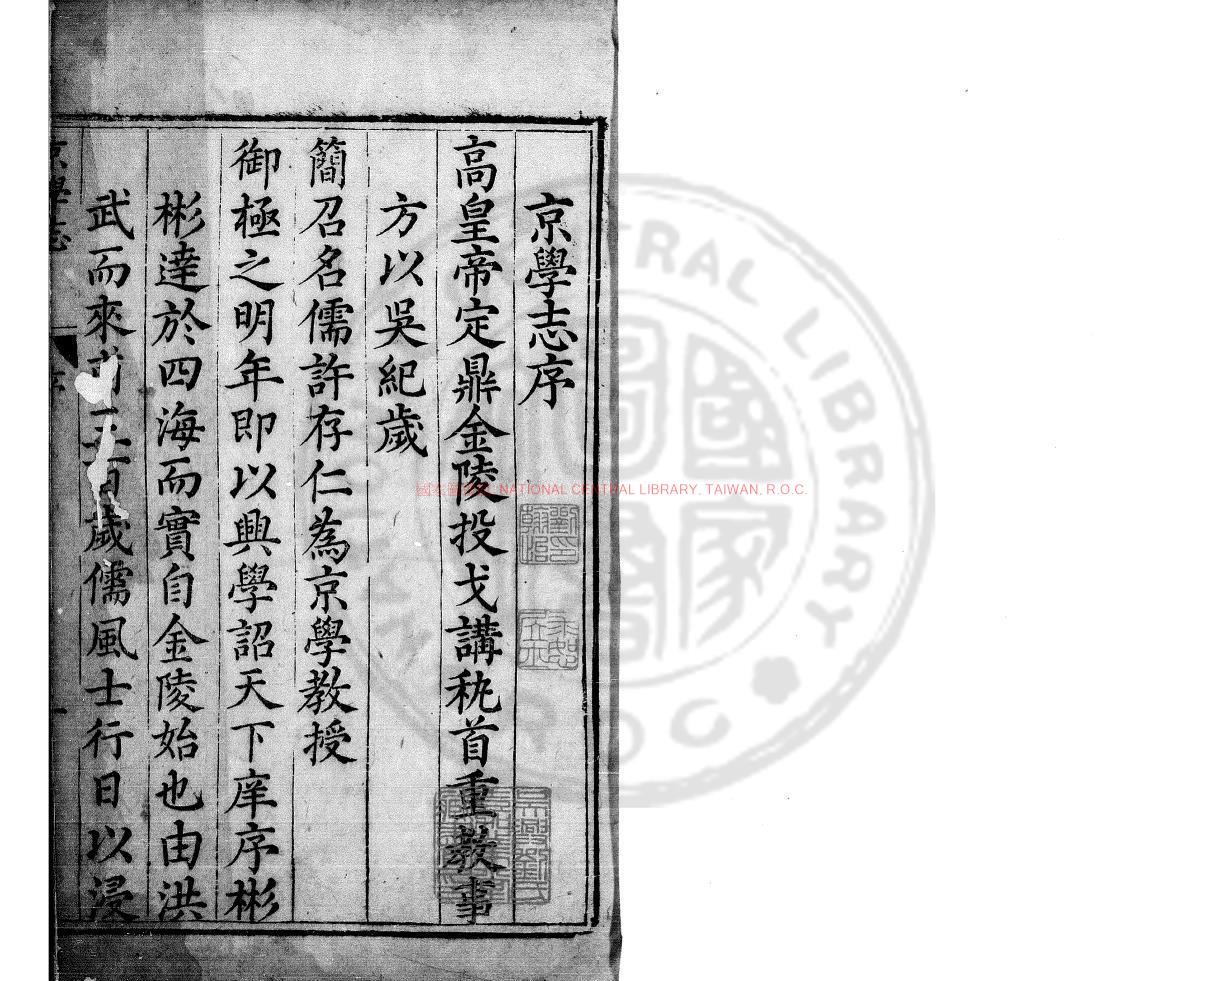 京學志序
高皇帝定鼎金陵投戈講秇首重教事
方以吳紀歲
簡召名儒許存仁為京學教授
御極之明年即以興學詔天下庠序彬
彬達於四海而實自金陵始也由洪
武而來百歲儒風士行日以浸
京學志
序
一
NATIONAL CENTRAL LIBRARY, TAIWAN, R.O.C.